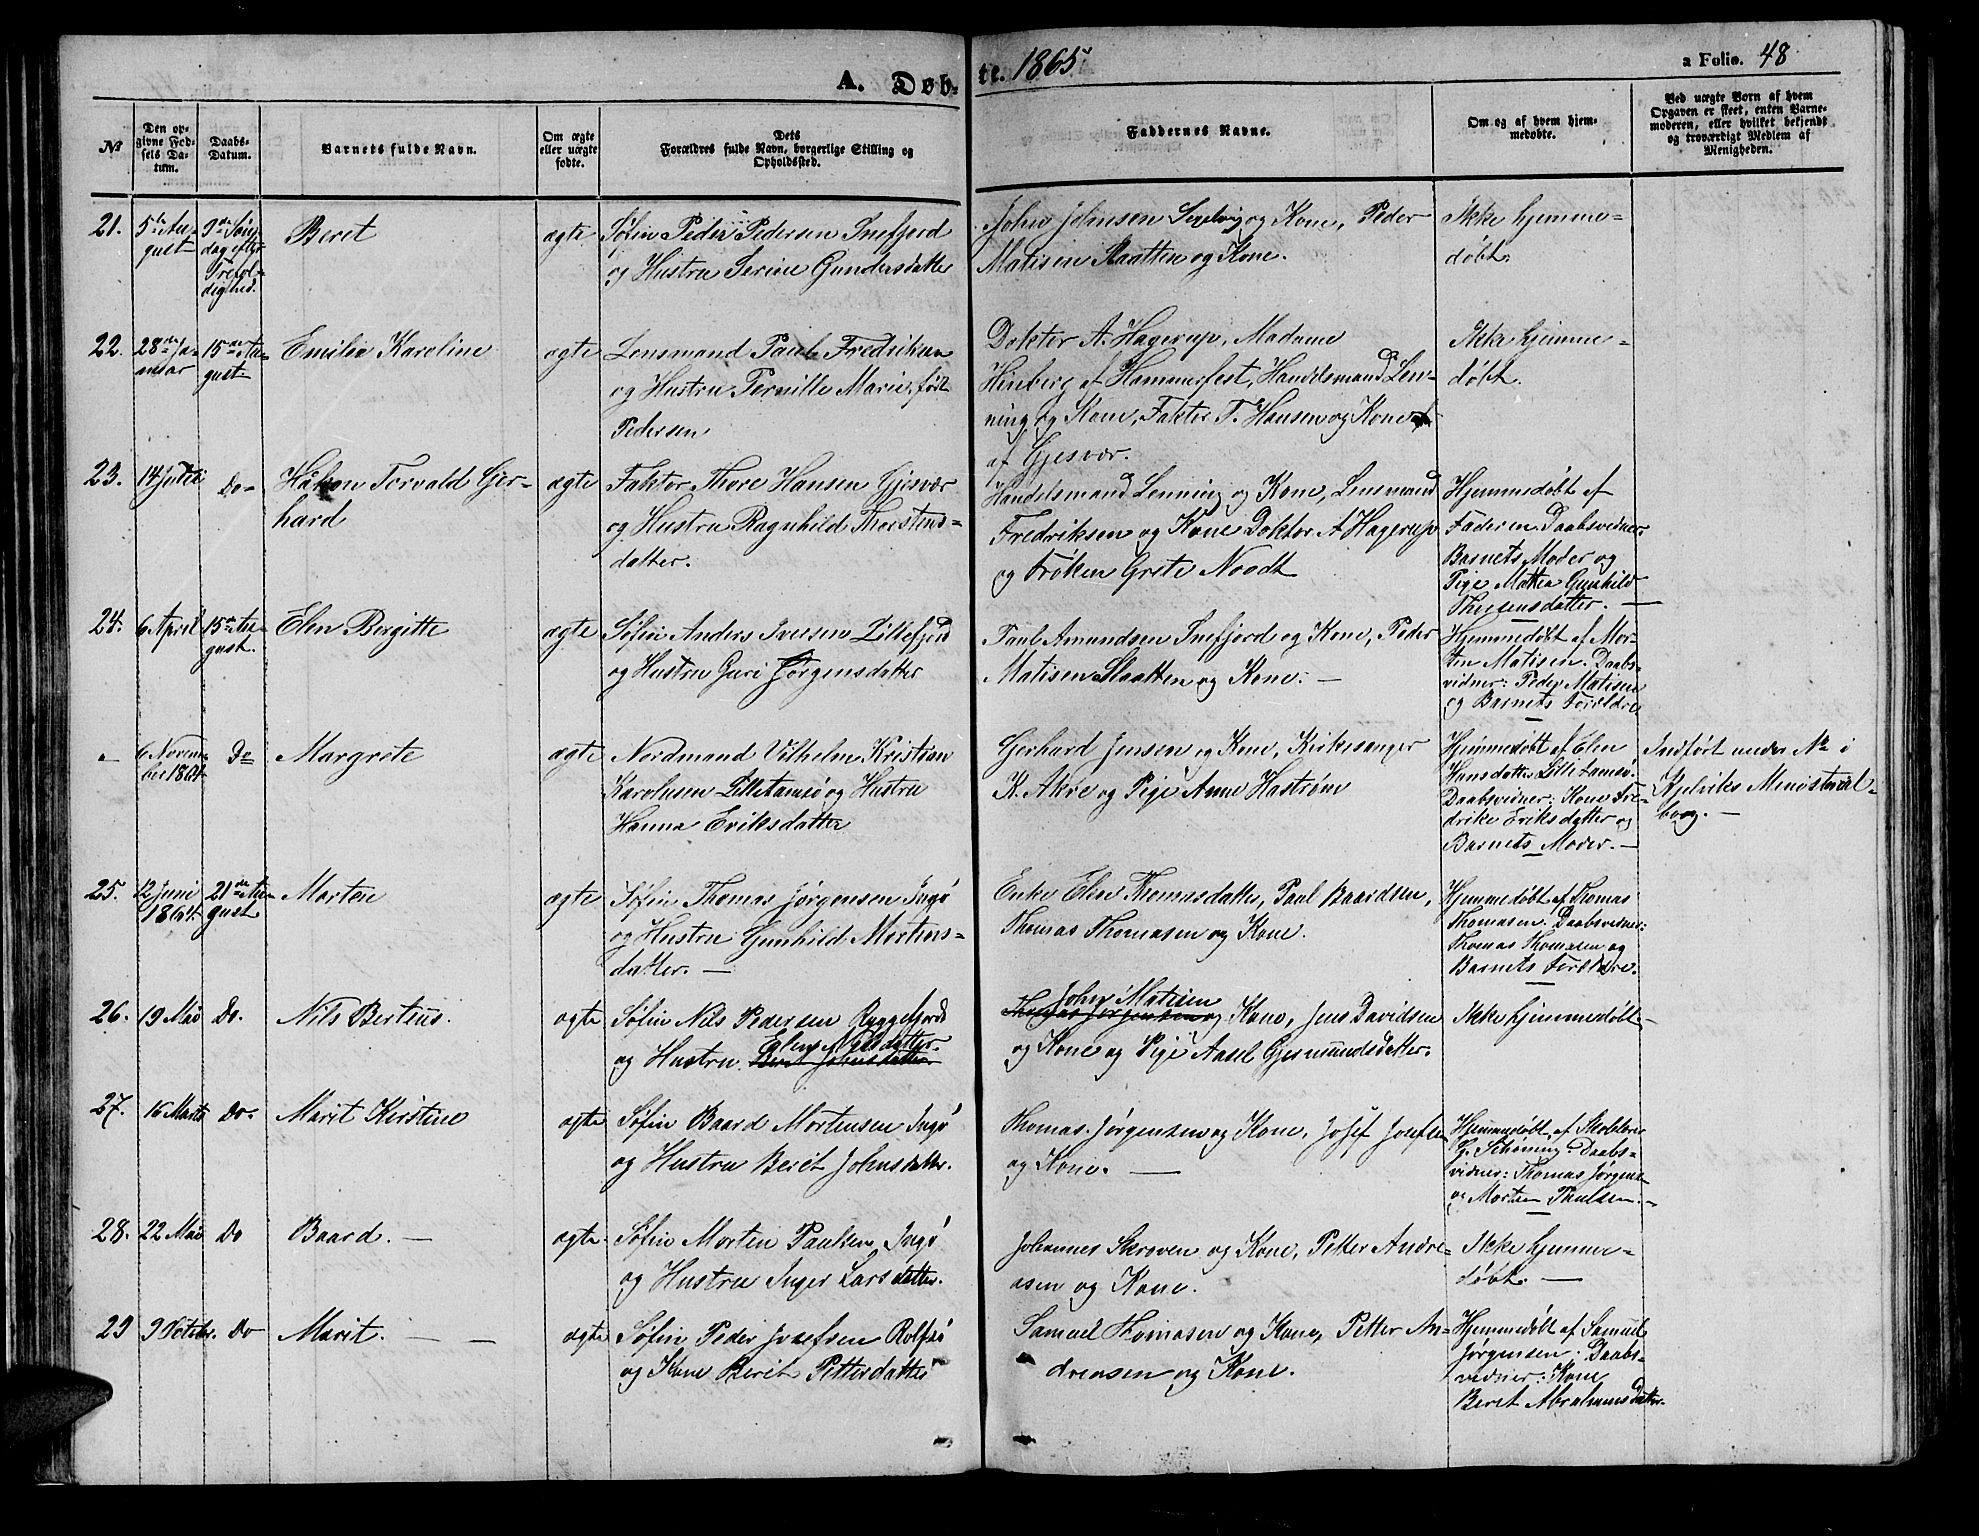 A. Døb-
te. 1865
a Folio. 48.
No
Den op-
givne Fød-
sels Da-
tum.
Daabs-
Datum.
Barnets fulde Navn.
Om ægte
eller uægte
fødte.
Dets
Forældres fulde Navn, borgerlige Stilling og
Opholdssted.
Faddernes Navne.
Om og af hvem hjem-
medøbte.
Ved uægte Børn af hvem
Opgaven er skeet, enten Barne-
moderen, eller hvilket bekjendt
og troværdigt Medlem af
Menigheden.
21.
5te Au-
gust
9de Søn-
dag efter
Trefol-
dighed.
Beret
ægte
Søfin Peder Pedersen Snefjord
og Hustru Serine Gundersdatter
John Johnsen og Kone, Peder
Matisen Slaatten og Kone.
Ikke hjemme-
døbt.
22.
28de Ja-
nuar
15de Au-
gust
Emilie Karoline
ægte
Lensmand Paul Fredriksen
og Hustru Pernille Marie, født
Pedersen
Doktor A. Hagerup, Madame
af Hammerfest, Handelsmand Len-
ning og Kone, Faktor T. Hansen og Kone
af Gjesvær.
Ikke hjemme-
døbt.
23.
14 Juli
Do-
Håkon Torvald Ger-
hard
ægte
Faktor Thore Hansen Gjesvær
og Hustru Ragnhild Thorstens-
datter.
Handelsmand Lenning og Kone, Lensmand
Fredriksen og Kone Doktor A Hagerup
og Frøken Grete Noodt
Hjemmedøbt af
Faderen. Daabsvidner
Barnets Moder og
Pige Mattea Gunhild
Thuesensdatter. —
24.
6 April
15de Au-
gust.
Elen Birgitte
ægte
Søfin Anders Iversen Lillefjord
og Hustru Guri Jørgensdatter
Paul Amundsen Snefjord og Kone, Peder
Matisen Slaatten og Kone. —
Hjemmedøbt af Mor-
ten Matisen. Daabs-
vidner: Peder Matisen
og Barnets Forældre
-
6 Novem-
ber 1864.
Do
Margrete
ægte
Nordmand Vilhelm Kristian
Karolusen Lilletamsø og Hustru
Hanna Eriksdatter
Gerhard Jensen og Kone, Kirkesanger
K. Akre og Pige Anne Hastrøm
Hjemmedøbt af Elen
Hansdatter Lilletamsø.
Daabsvidner: Kone Fre-
drike Eriksdatter og
Barnets Moder. —
Indført under No i
Kjelviks Ministerial-
bog. —
25.
12 Juni
1864
21de Au-
gust
Morten
ægte
Søfin Thomas Jørgensen Ingø
og Hustru Gunhild Mortens-
datter. —
Enke Elen Thomasdatter, Paul Baardsen,
Thomas Thomasen og Kone.
Hjemmedøbt af Thomas
Thomasen. Daabsvidner:
Thomas Thomasen og
Barnets Forældre.
26.
19 Mai
Do.
Nils Bertius.
ægte
Søfin Nils Pedersen Ryggefjord
Elen Nilsdatter.
og Hustru Beret Johnsdatter
John Matisen
Thomas Jørgensen og Kone, Jens Davidsen
og Kone og Pige Aasel Gjermundsdatter.
Ikke hjemmedøbt. —
27.
16 Marts
Do-
Marit Kirstine
ægte
Søfin Baard Mortensen Ingø
og Hustru Beret Johnsdatter.
Thomas Jørgensen og Kone, Josef Josefsen
og Kone. —
Hjemmedøbt af Skolelærer
Schøning. Daabs-
vidner: Thomas Jørgens
og Morten Paulsen. —
28.
22 Mai
Do
Baard. —
ægte.
Søfin Morten Paulsen Ingø
og Hustru Inger Larsdatter.
Johannes Skroven og Kone, Petter Andre-
asen og Kone.
Ikke hjemme-
døbt. —
29
9 Octobr.
Do
Marit. — —
ægte
Søfin Peder Josefsen Rolfsø
og Kone Beret Pettersdatter
Samuel Thomasen og Kone, Petter An-
dreasen og Kone.
Hjemmedøbt af Samuel
Jørgensen. Daabs-
vidner: Kone
Beret Abrahamsdatter.